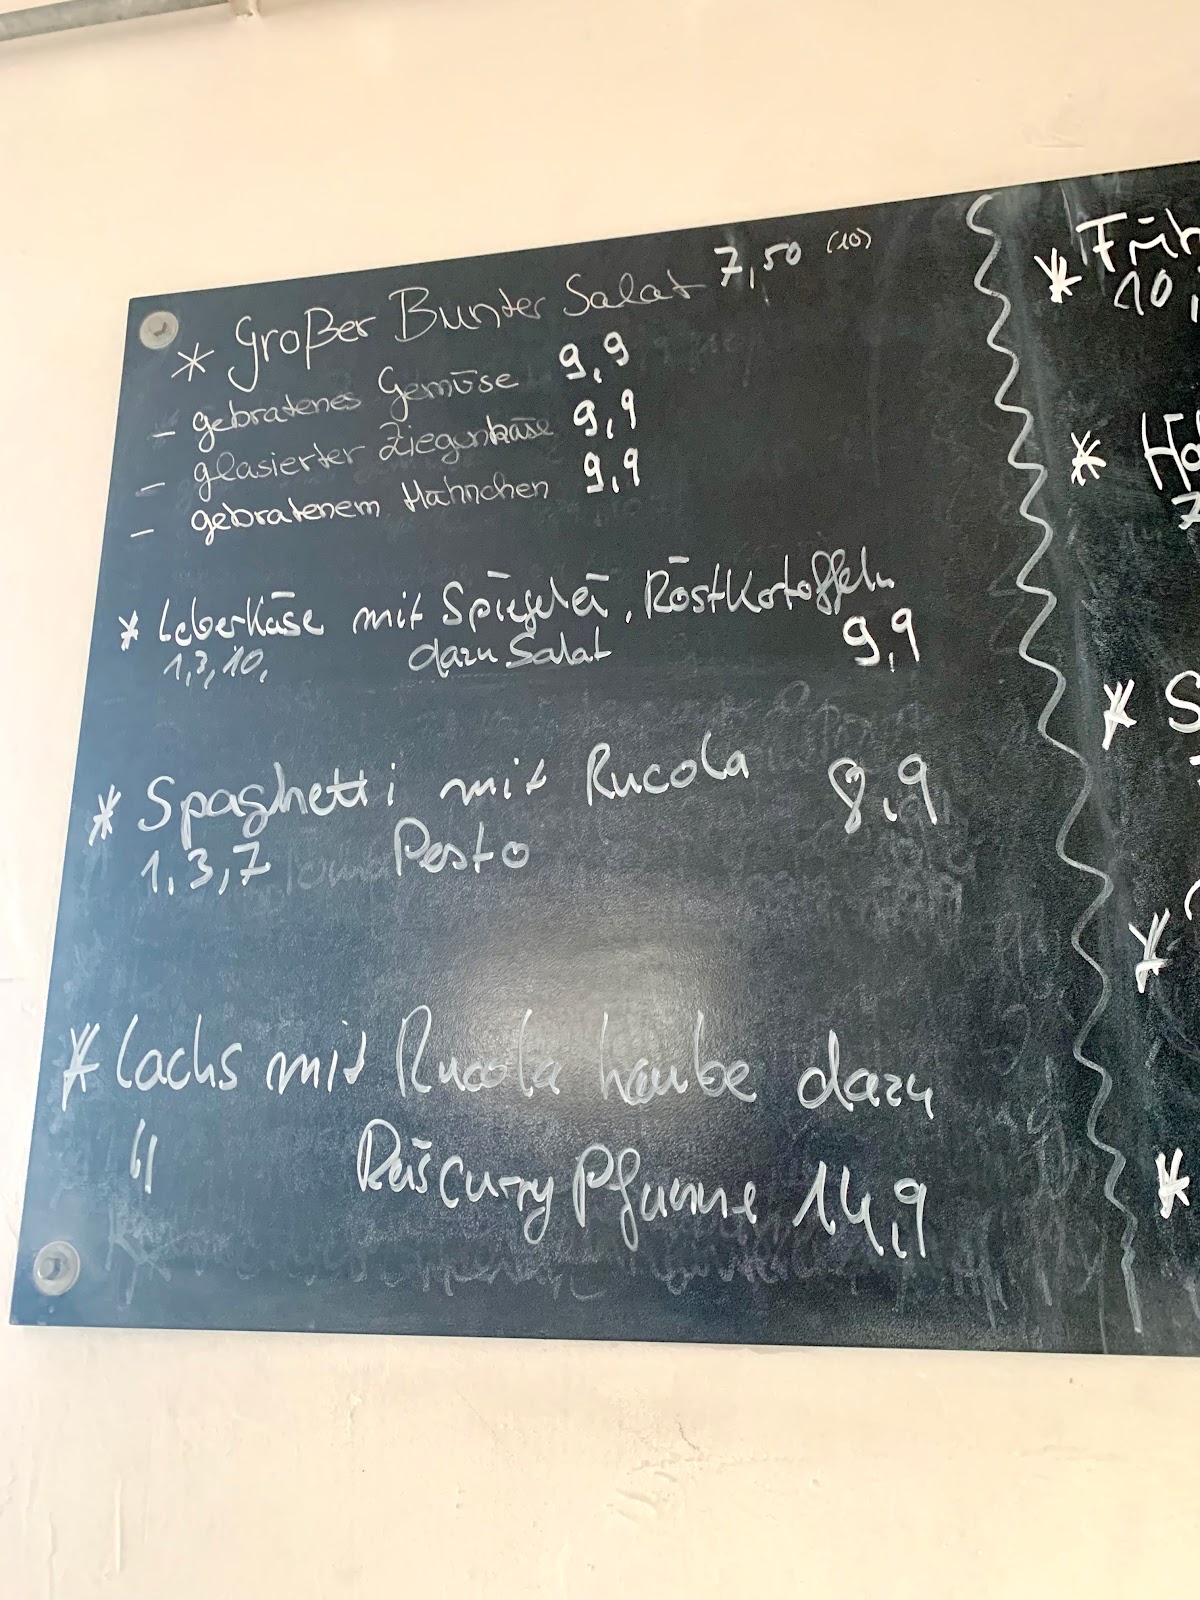 * Großer Bunter Salat 7,50 (10)
- gebratenes Gemüse 9,9
- glasierter Ziegenkäse 9,9
- gebratenem Hähnchen 9,9
* Leberkäse mit Spiegelei, Röstkartoffeln
1,3,10, dazu Salat 9,9
* Spaghetti mit Rucola 8,9
1,3,7 Pesto
* Lachs mit Rucola haube dazu
4 Reis Curry Pfanne 14,9
* Früh
10,
* Hä
7
* S
*
*